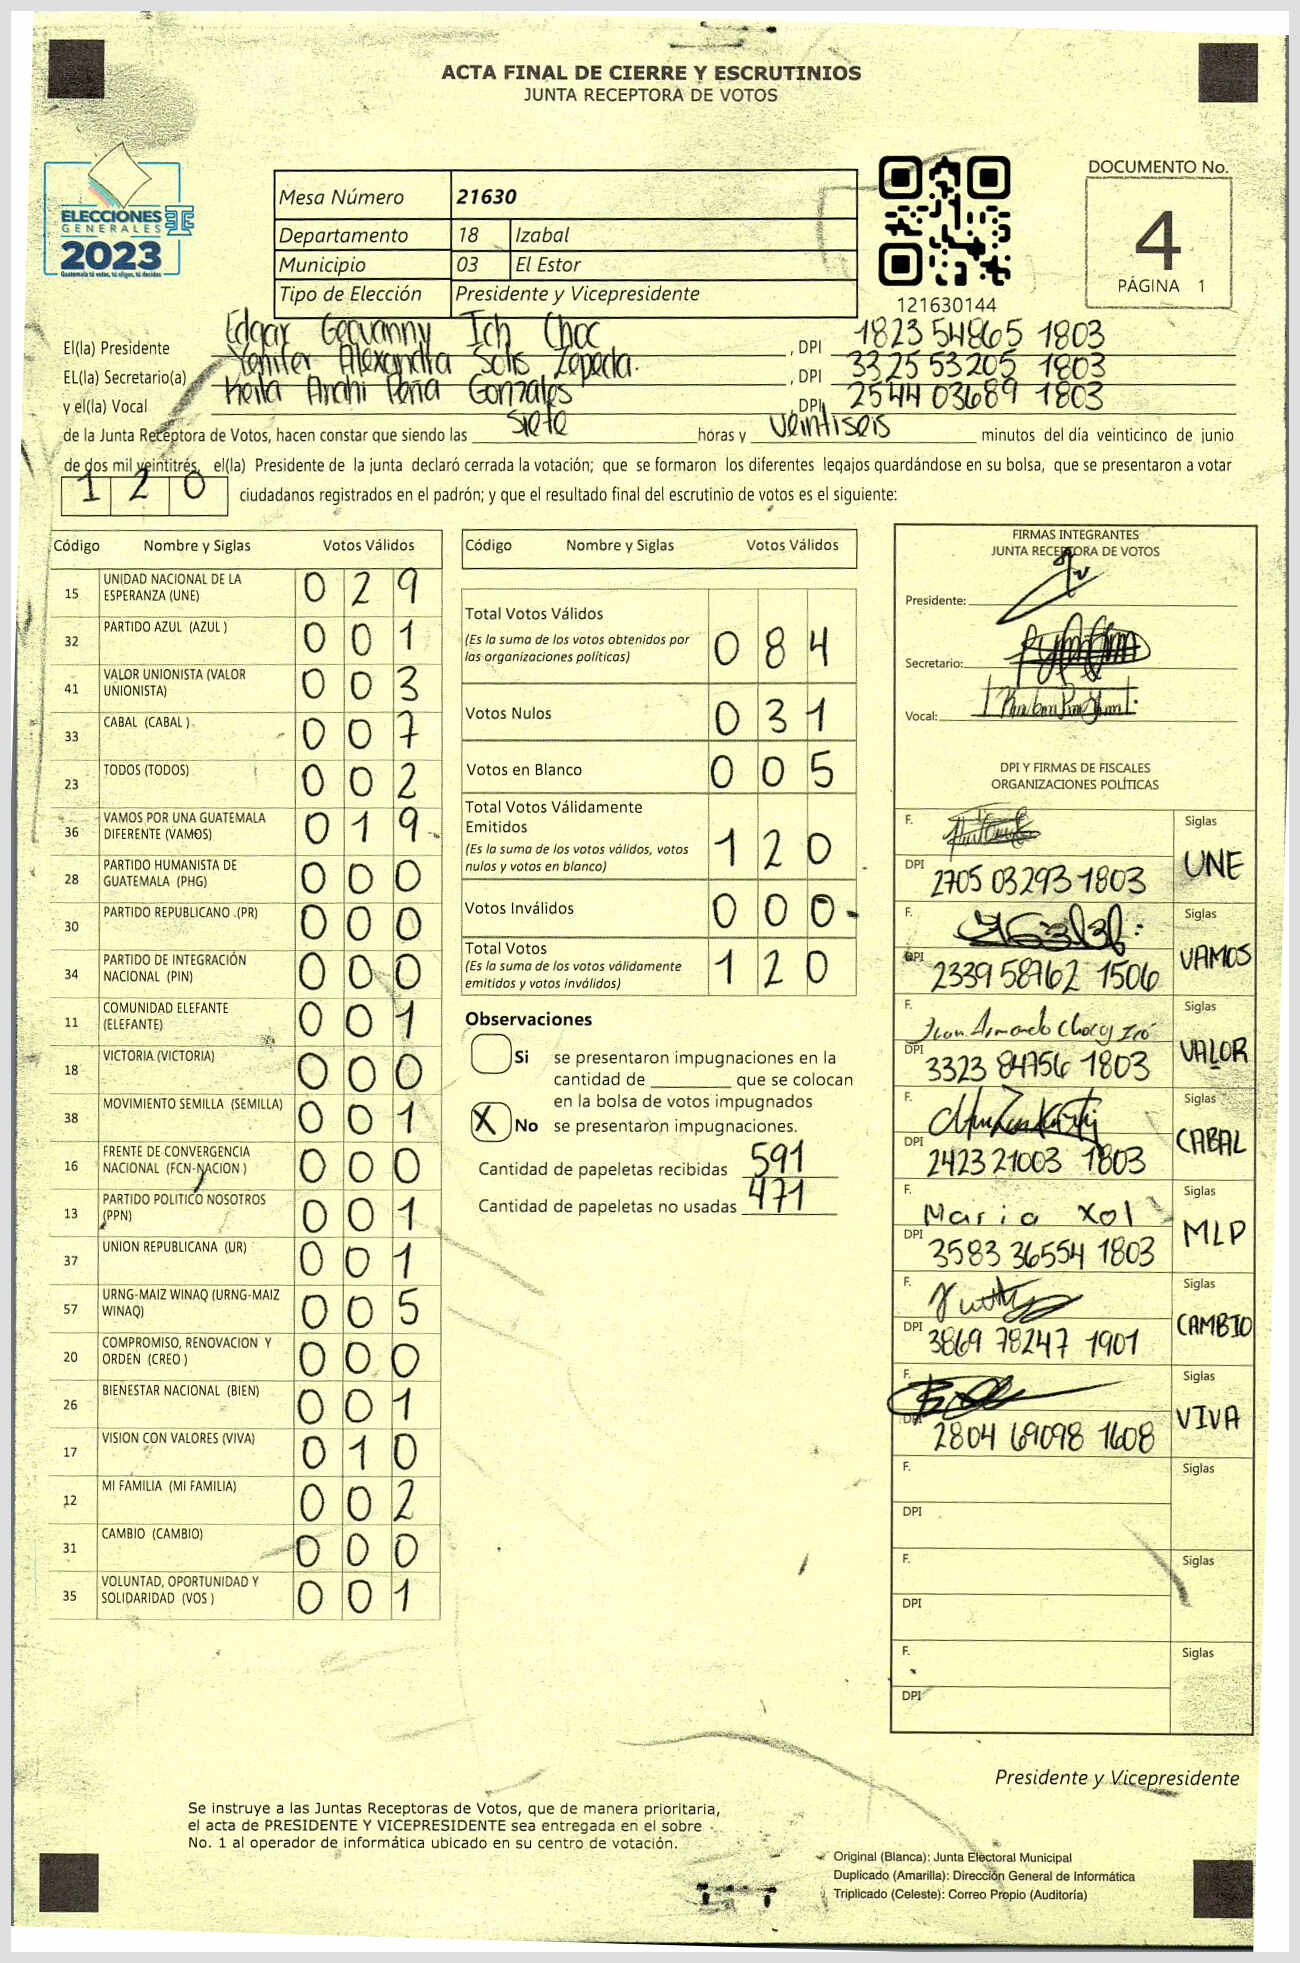 ACTA FINAL DE CIERRE Y ESCRUTINIOS
JUNTA RECEPTORA DE VOTOS
ELECCIONES
GENERALES
2023
Guatemala tú votas, tú eliges, tú decides
Mesa Número 21630
Departamento 18 Izabal
Municipio 03 El Estor
Tipo de Elección Presidente y Vicepresidente
121630144
DOCUMENTO No.
4
PÁGINA 1
El(la) Presidente Edgar Geovanny Ich Choc, DPI 1823 54865 1803
EL(la) Secretario(a) Yenifer Alexandra Solis Zepeda. , DPI 3325 53205 1803
y el(la) Vocal Keila Anahi Peña Gonzales, DPI 2544 03689 1803
de la Junta Receptora de Votos, hacen constar que siendo las siete horas y veintiseis minutos del día veinticinco de junio
de dos mil veintitrés, el(la) Presidente de la junta declaró cerrada la votación; que se formaron los diferentes legajos guardándose en su bolsa, que se presentaron a votar
1 2 0 ciudadanos registrados en el padrón; y que el resultado final del escrutinio de votos es el siguiente:
Código Nombre y Siglas Votos Válidos
15 UNIDAD NACIONAL DE LA ESPERANZA (UNE) 0 2 9
32 PARTIDO AZUL (AZUL ) 0 0 1
41 VALOR UNIONISTA (VALOR UNIONISTA) 0 0 3
33 CABAL (CABAL ) 0 0 7
23 TODOS (TODOS) 0 0 2
36 VAMOS POR UNA GUATEMALA DIFERENTE (VAMOS) 0 1 9
28 PARTIDO HUMANISTA DE GUATEMALA (PHG) 0 0 0
30 PARTIDO REPUBLICANO (PR) 0 0 0
34 PARTIDO DE INTEGRACIÓN NACIONAL (PIN) 0 0 0
11 COMUNIDAD ELEFANTE (ELEFANTE) 0 0 1
18 VICTORIA (VICTORIA) 0 0 0
38 MOVIMIENTO SEMILLA (SEMILLA) 0 0 1
16 FRENTE DE CONVERGENCIA NACIONAL (FCN-NACION ) 0 0 0
13 PARTIDO POLITICO NOSOTROS (PPN) 0 0 1
37 UNION REPUBLICANA (UR) 0 0 1
57 URNG-MAIZ WINAQ (URNG-MAIZ WINAQ) 0 0 5
20 COMPROMISO, RENOVACION Y ORDEN (CREO ) 0 0 0
26 BIENESTAR NACIONAL (BIEN) 0 0 1
17 VISION CON VALORES (VIVA) 0 1 0
12 MI FAMILIA (MI FAMILIA) 0 0 2
31 CAMBIO (CAMBIO) 0 0 0
35 VOLUNTAD, OPORTUNIDAD Y SOLIDARIDAD (VOS ) 0 0 1
Código Nombre y Siglas Votos Válidos
Total Votos Válidos 0 8 4
(Es la suma de los votos obtenidos por
las organizaciones políticas)
Votos Nulos 0 3 1
Votos en Blanco 0 0 5
Total Votos Válidamente
Emitidos 1 2 0
(Es la suma de los votos válidos, votos
nulos y votos en blanco)
Votos Inválidos 0 0 0
Total Votos 1 2 0
(Es la suma de los votos válidamente
emitidos y votos inválidos)
Observaciones
Si se presentaron impugnaciones en la
cantidad de ________ que se colocan
en la bolsa de votos impugnados
X No se presentaron impugnaciones.
Cantidad de papeletas recibidas 591
Cantidad de papeletas no usadas 471
FIRMAS INTEGRANTES
JUNTA RECEPTORA DE VOTOS
Presidente:
Secretario:
Vocal:
DPI Y FIRMAS DE FISCALES
ORGANIZACIONES POLÍTICAS
F. Siglas
DPI 2705 03293 1803 UNE
F. Siglas
DPI 2339 58762 1506 VAMOS
F. Juan Armando Choc y Siglas
DPI 3323 84756 1803 VALOR
F. Siglas
DPI 2423 21003 1803 CABAL
F. Maria Xol Siglas
DPI 3583 36554 1803 MLP
F. Siglas
DPI 3869 78247 1901 CAMBIO
F. Siglas
DPI 2804 69098 1608 VIVA
F. Siglas
DPI
F. Siglas
DPI
F. Siglas
DPI
Presidente y Vicepresidente
Se instruye a las Juntas Receptoras de Votos, que de manera prioritaria,
el acta de PRESIDENTE Y VICEPRESIDENTE sea entregada en el sobre
No. 1 al operador de informática ubicado en su centro de votación.
Original (Blanca): Junta Electoral Municipal
Duplicado (Amarilla): Dirección General de Informática
Triplicado (Celeste): Correo Propio (Auditoría)